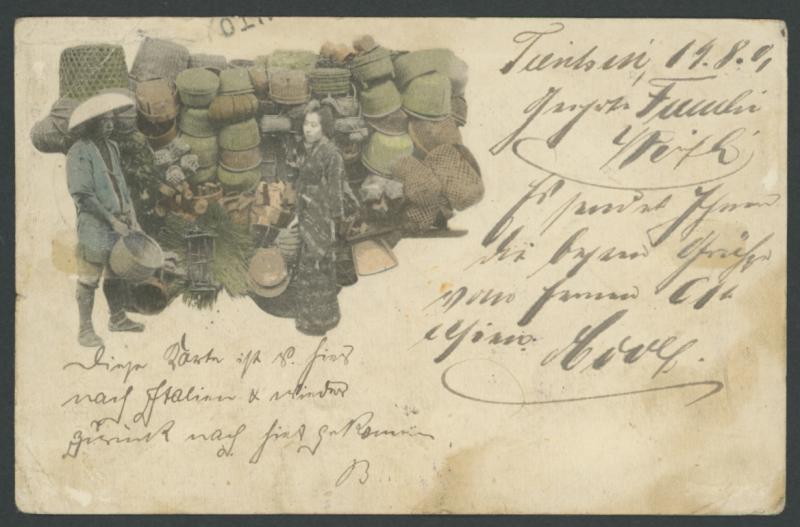 Tientsin, 19.8.01
Geehrte Familie
Es sendet Ihnen
die besten Grüsse
vom fernen Ost
Asien.
Diese Karte ist v. hier
nach Italien & wieder
zurück nach hier gekommen
B.